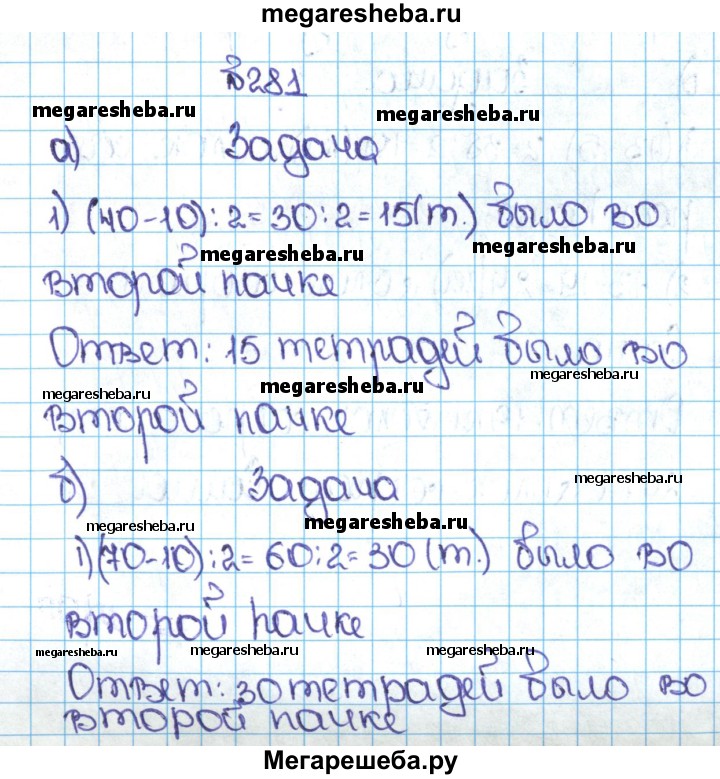 megaresheba.ru
№281
megaresheba.ru megaresheba.ru
а) Задача
1) (40-10):2=30:2=15(т.) было во
megaresheba.ru megaresheba.ru
второй пачке
Ответ: 15 тетрадей было во
megaresheba.ru megaresheba.ru megaresheba.ru
второй пачке
б) Задача
megaresheba.ru
megaresheba.ru megaresheba.ru
1)(70-10):2=60:2=30(т.) было во
второй пачке
megaresheba.ru megaresheba.ru megaresheba.ru
Ответ: 30 тетрадей было во
второй пачке
Мегарешеба.ру